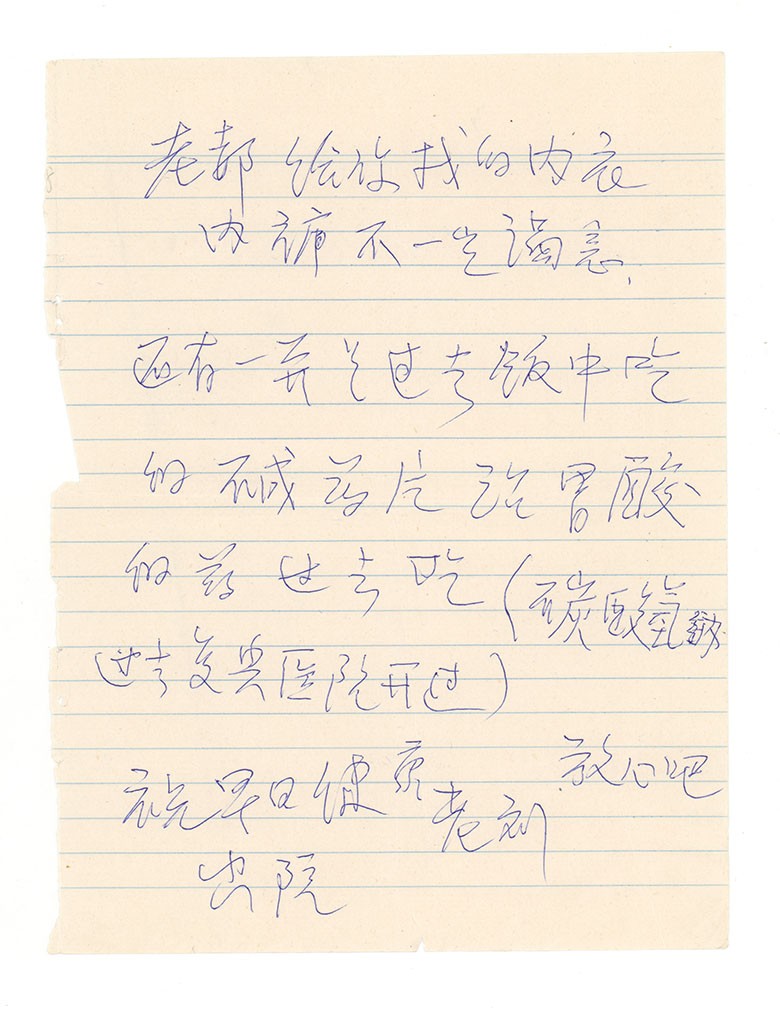 老都 给你找的内衣
内裤不一定满意.
还有一 过去饭中吃
的碱药片 治胃酸
的药 过去吃 (碳酸氢钠
过去复兴医院开过)
放心吧
祝早日健康 老刘
出院